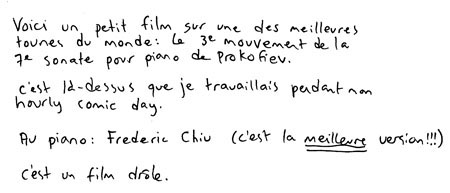 Voici un petit film sur une des meilleures
tounes du monde: Le 3e mouvement de la
7e sonate pour piano de Prokofiev.
c'est là-dessus que je travaillais pendant mon
hourly comic day.
Au piano: Frederic Chiu (c'est la meilleure version!!!)
c'est un film drôle.